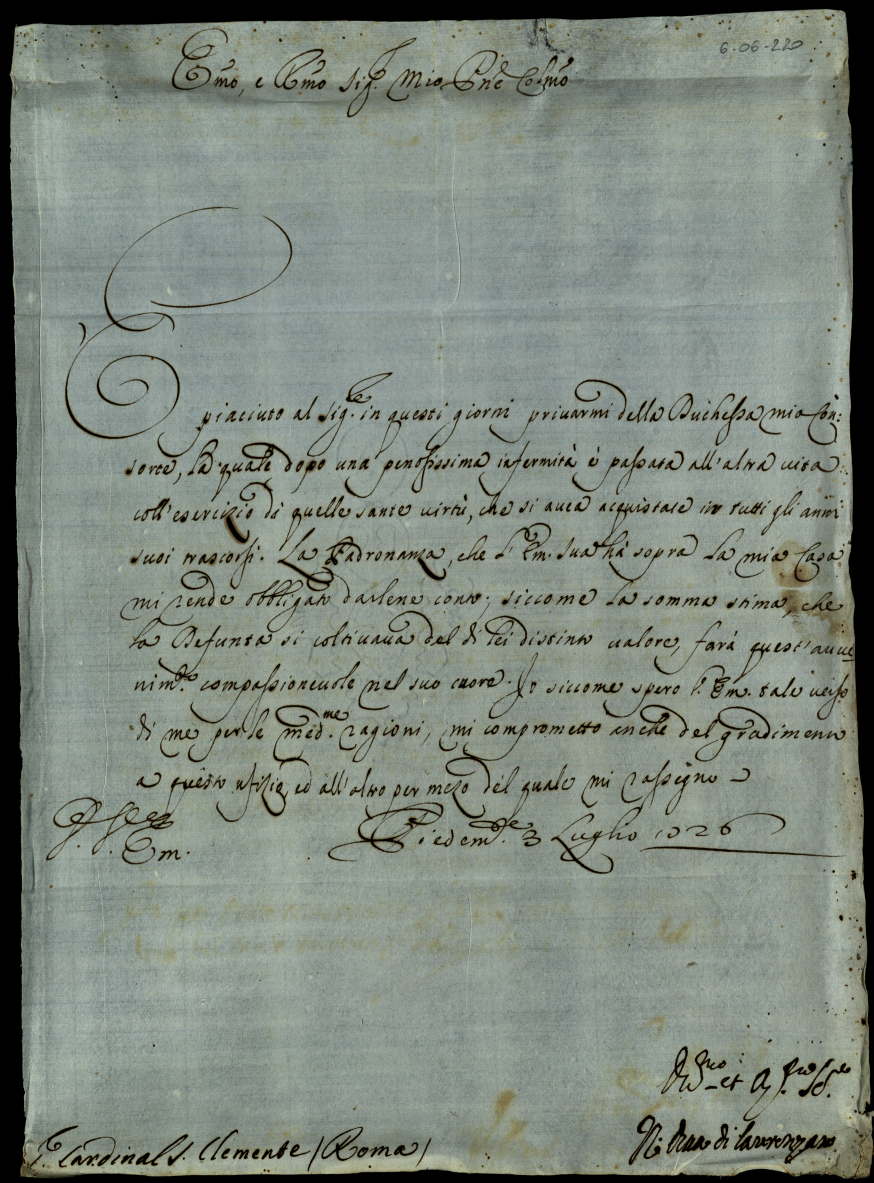 6-06-220
Em̃o, e Rm̃o Sig.r Mio Pne Colmo
E piaciuto al Sig.re in questi giorni privarmi della Duchessa mia Con:
sorte, la quale dopo una penosissima infermità è passata all'altra vita
coll'esercizio di quelle sante virtù, che si avea acquistate in tutti gli anni
suoi trascorsi. La Padronanza, che l'Em. Sua hà sopra la mia Casa
mi rende obbligato darlene conto; siccome la somma stima, che
la Defunta si coltivava del di lei distinto valore, farà quest'avve
nim.to compassionevole nel suo cuore. Io siccome spero l'Em. tale verso
di me per le med.me ragioni, mi comprometto anche del gradimento
a questo ufizio, ed all'altro per mezo del quale mi rassegno
Em.
Piedem.te 3 Luglio 1726
Div.mo et
di Laurenzano
Cardinal S. Clemente (Roma)